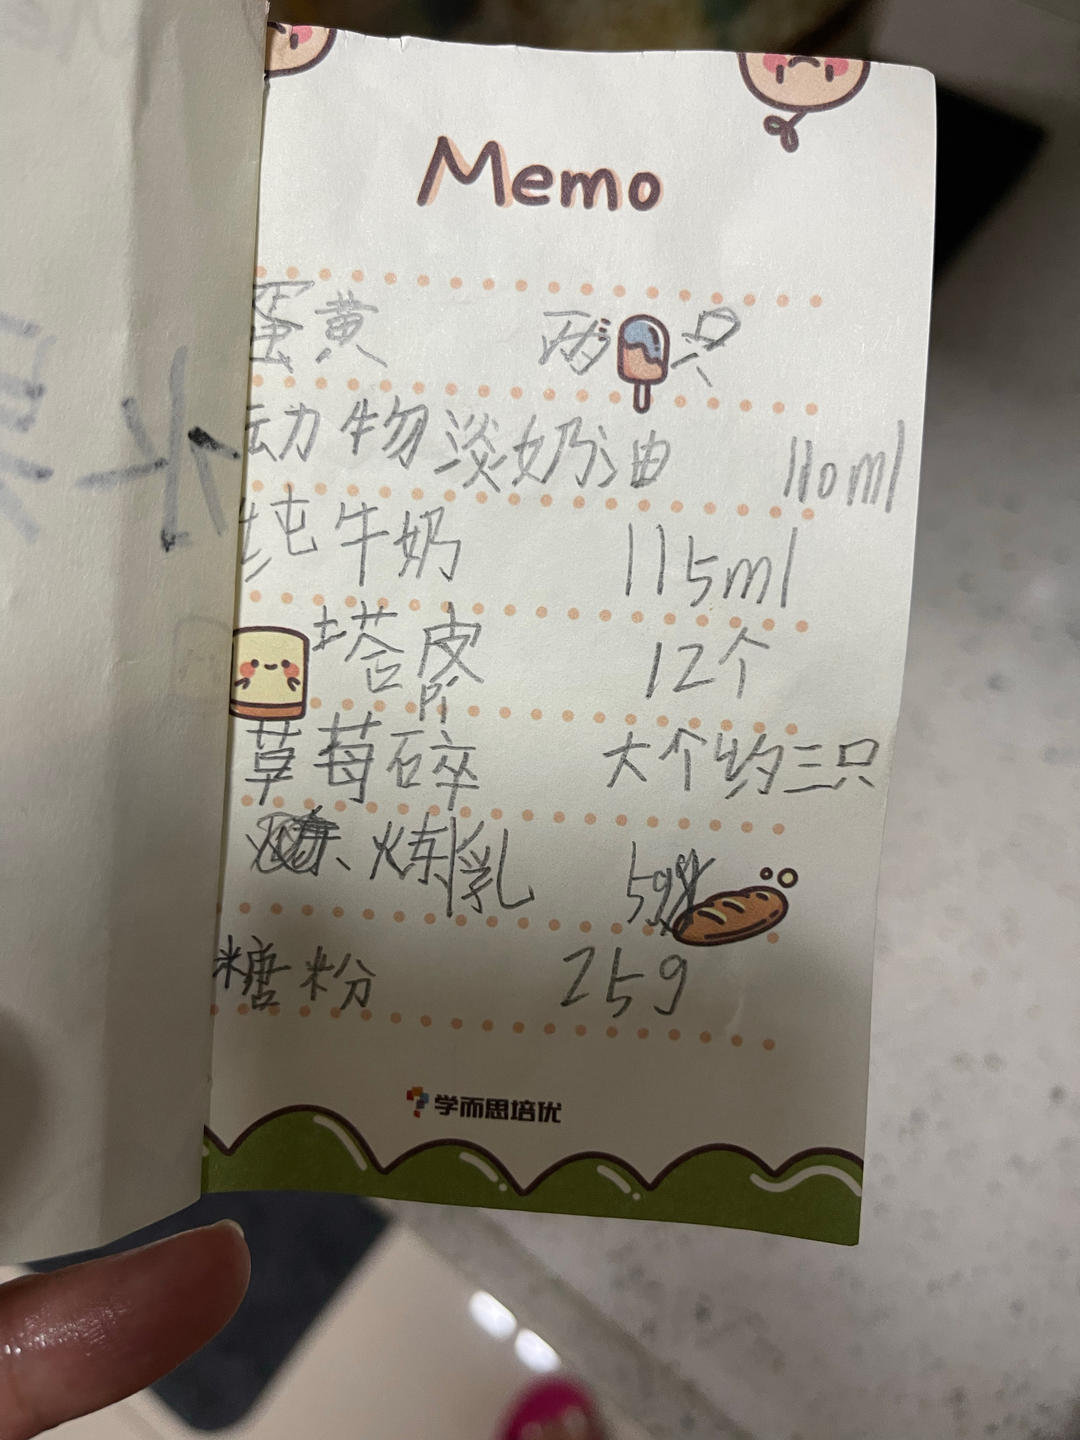 Memo
蛋黄 两只
动物淡奶油 110ml
纯牛奶 115ml
塔皮 12个
草莓碎 大个约三只
炼乳 5g
糖粉 25g
学而思培优